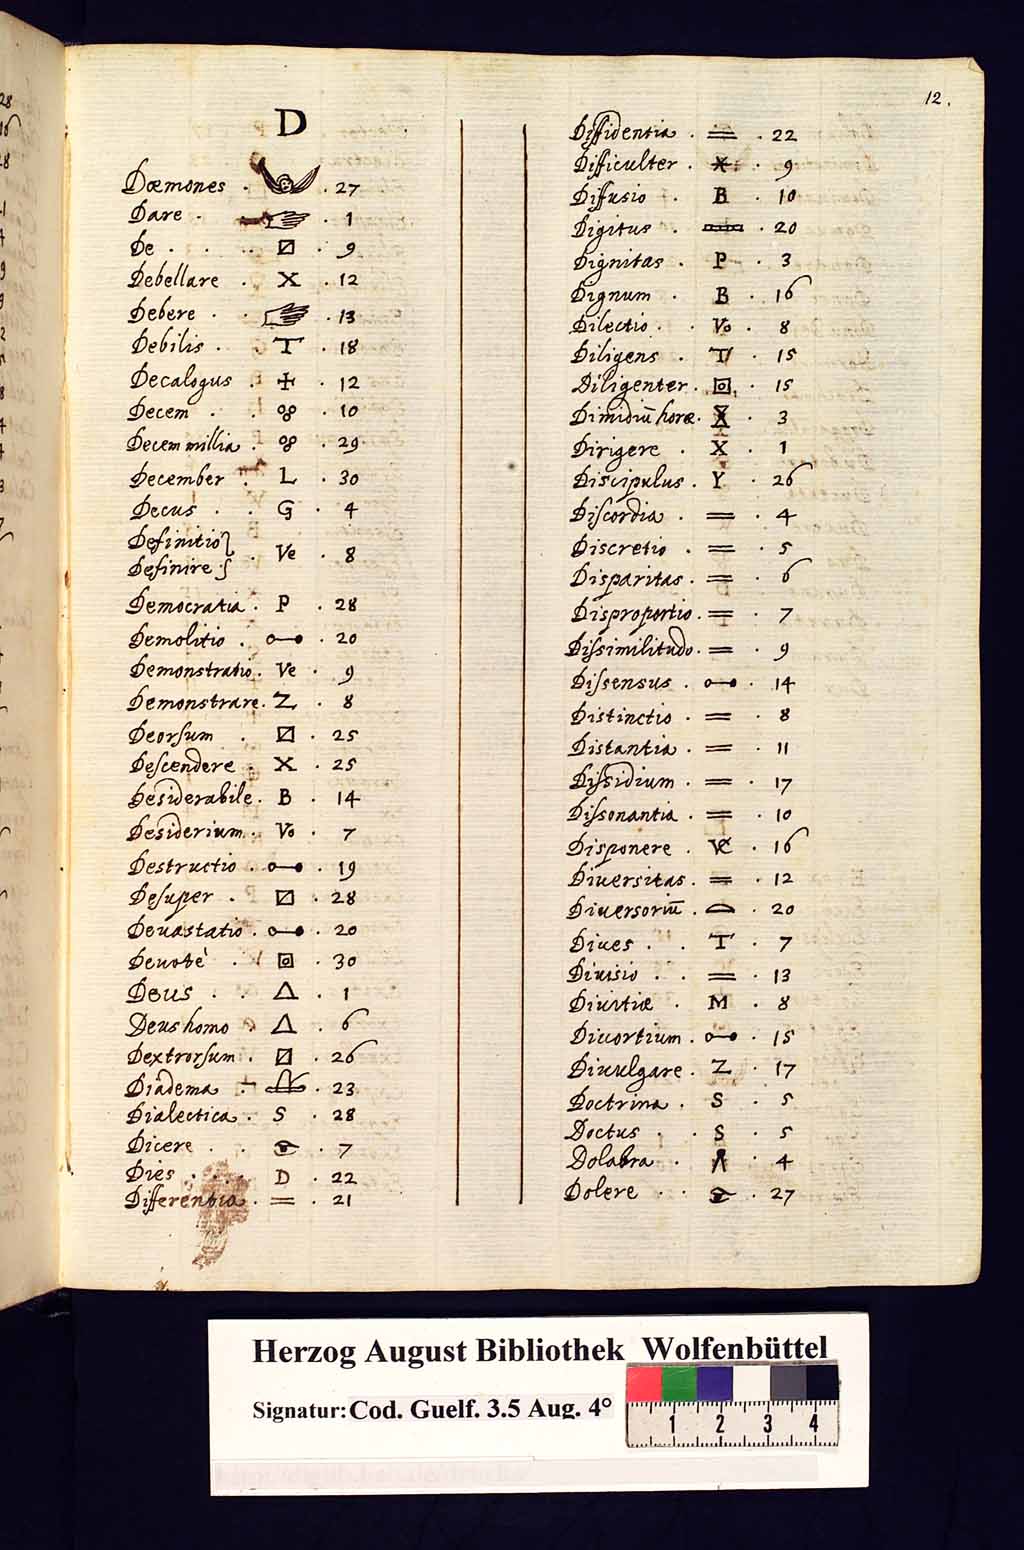 12.
D
Dæmones . . 27
Dare . . 1
De . . . . 9
Debellare . X . 12
Debere . . . 13
Debilis . T . 18
Decalogus . . 12
Decem . . . 10
Decem millia . . 29
December . L . 30
Decus . . G . 4
Definitio } . Ve . 8
Definire }
Democratia . P . 28
Demolitio . . 20
Demonstratio . Ve . 9
Demonstrare . Z . 8
Deorſum . . 25
Deſcendere . X . 25
Desiderabile . B . 14
Desiderium . Vo . 7
Destructio . . 19
Deſuper . . 28
Deuastatio . . 20
Deuotè . . 30
Deus . . Δ . 1
Deus homo . Δ . 6
Dextrorſum . . 26
Diadema . . 23
Dialectica . S . 28
Dicere . . . 7
Dies . . . D . 22
Differentia . = . 21
Diffidentia . = . 22
Difficulter . . 9
Diffusio . B . 10
Digitus . . 20
Dignitas . P . 3
Dignum . B . 16
Dilectio . Vo . 8
Diligens . T . 15
Diligenter . . 15
Dimidiū horæ . . 3
Dirigere . X . 1
Discipulus . Y . 26
Diſcordia . = . 4
Discretio . = . 5
Disparitas . = . 6
Disproportio . = . 7
Diſsimilitudo . = . 9
Diſsensus . . 14
Distinctio . = . 8
Distantia . = . 11
Diſsidium . = . 17
Diſsonantia . = . 10
Disponere . Ve . 16
Diuersitas . = . 12
Diuersoriū . . 20
Diues . . T . 7
Diuisio . . = . 13
Diuitiæ . M . 8
Diuortium . . 15
Diuulgare . Z . 17
Doctrina . S . 5
Doctus . . S . 5
Dolabra . . 4
Dolere . . . 27
Herzog August Bibliothek Wolfenbüttel
Signatur: Cod. Guelf. 3.5 Aug. 4°
1 2 3 4